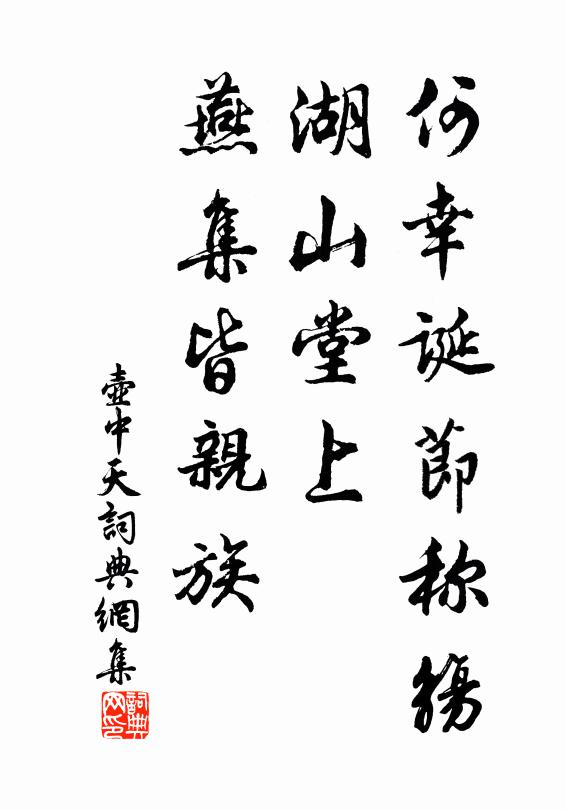 何幸誕節称觴
湖山堂上
燕集皆親族
壺中天詞典網集
詞典
网印